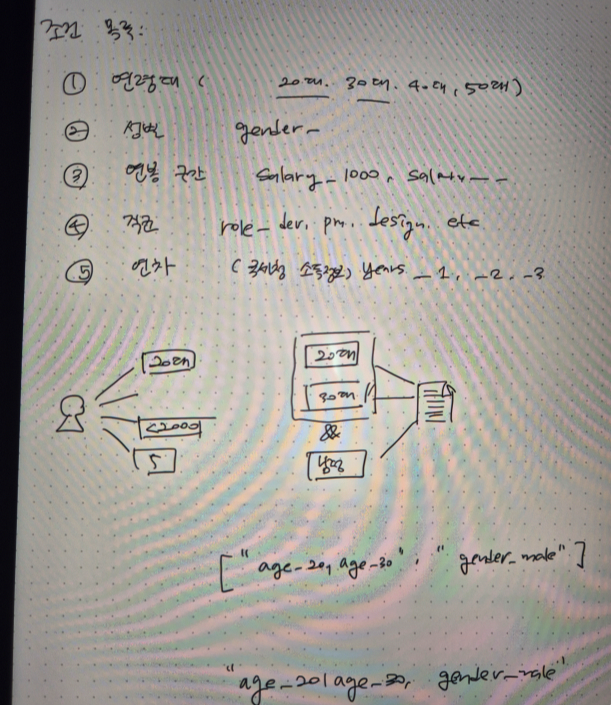 조건 목록:
① 연령대 ( 20대. 30대. 40대, 50대)
② 성별 gender_
③ 연봉 구간 salary_1000, salary_ _
④ 직군 role_dev. pm. design. etc
⑤ 연차 ( 소득정보) years _1, _2, _3
20대 20대
30대
<2000 &&
5 남성
["age_20, age_30", "gender_male"]
"age_20|age_30, gender_male"